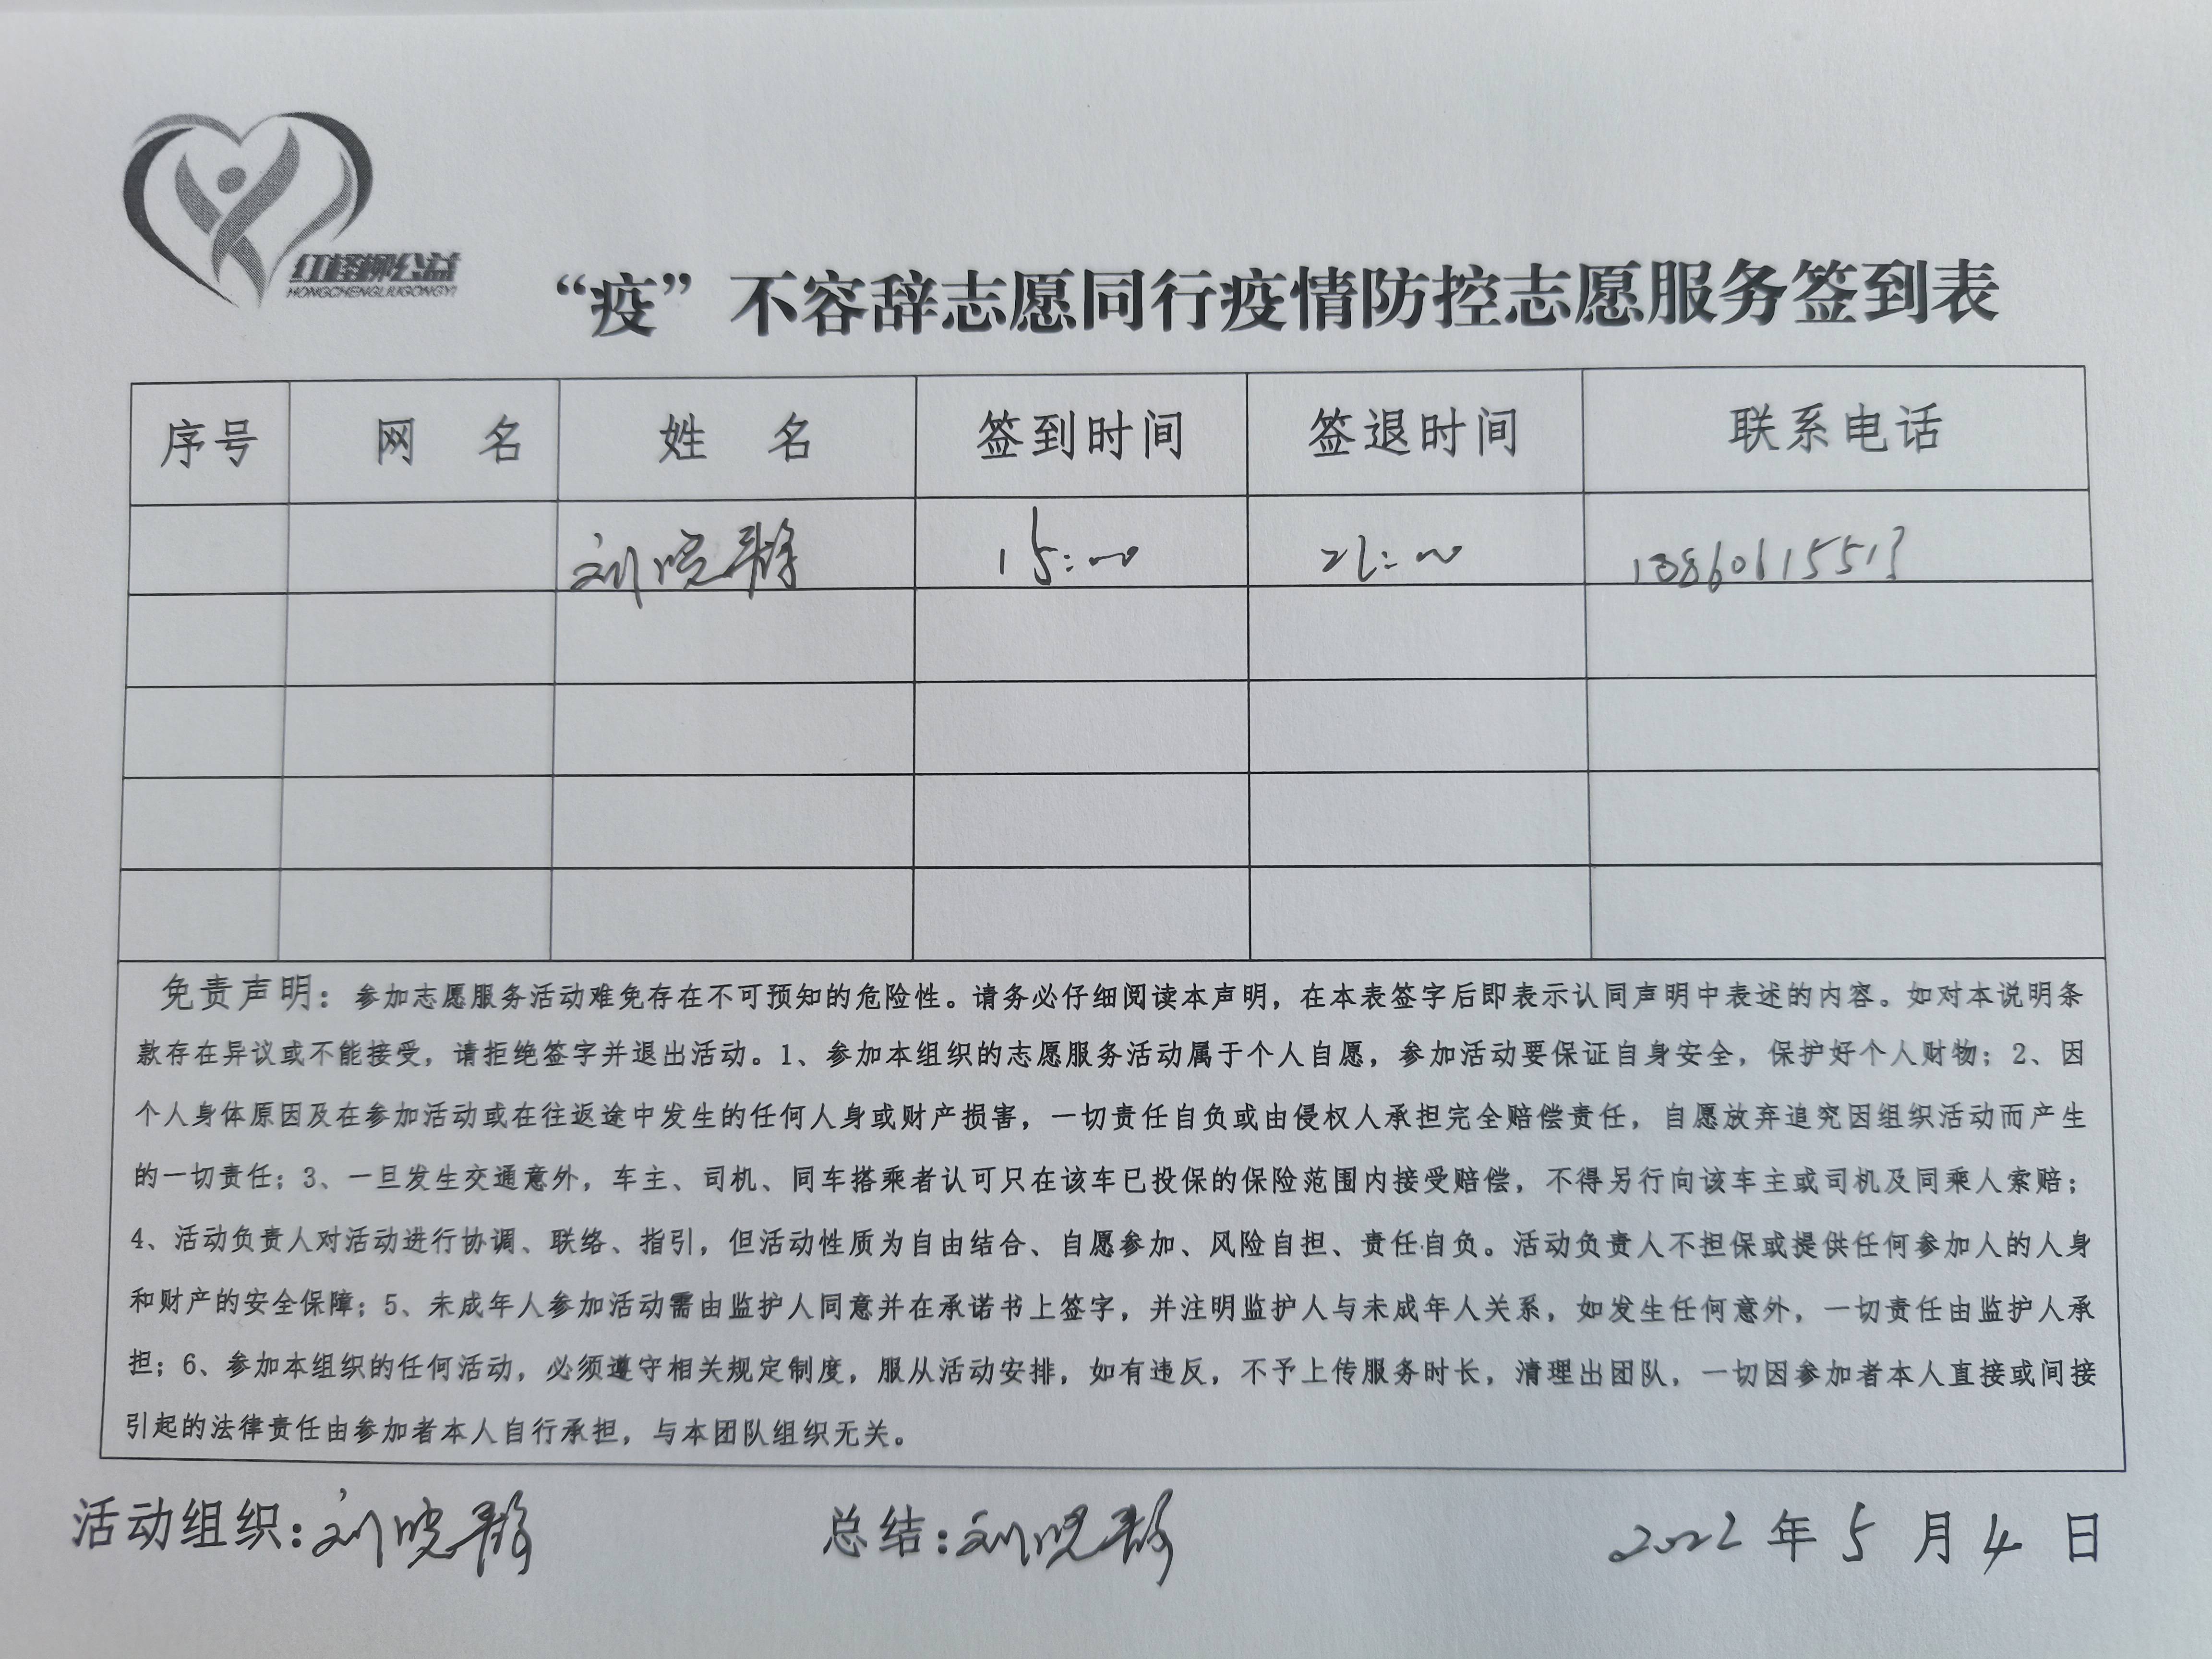 红柽柳公益
HONGCHENGLIUGONGYI
“疫”不容辞志愿同行疫情防控志愿服务签到表
序号 网 名 姓 名 签到时间 签退时间 联系电话
刘晓静 15:00 21:00 13860615513
免责声明：参加志愿服务活动难免存在不可预知的危险性。请务必仔细阅读本声明，在本表签字后即表示认同声明中表述的内容。如对本说明条
款存在异议或不能接受，请拒绝签字并退出活动。1、参加本组织的志愿服务活动属于个人自愿，参加活动要保证自身安全，保护好个人财物；2、因
个人身体原因及在参加活动或在往返途中发生的任何人身或财产损害，一切责任自负或由侵权人承担完全赔偿责任，自愿放弃追究因组织活动而产生
的一切责任；3、一旦发生交通意外，车主、司机、同车搭乘者认可只在该车已投保的保险范围内接受赔偿，不得另行向该车主或司机及同乘人索赔；
4、活动负责人对活动进行协调、联络、指引，但活动性质为自由结合、自愿参加、风险自担、责任自负。活动负责人不担保或提供任何参加人的人身
和财产的安全保障；5、未成年人参加活动需由监护人同意并在承诺书上签字，并注明监护人与未成年人关系，如发生任何意外，一切责任由监护人承
担；6、参加本组织的任何活动，必须遵守相关规定制度，服从活动安排，如有违反，不予上传服务时长，清理出团队，一切因参加者本人直接或间接
引起的法律责任由参加者本人自行承担，与本团队组织无关。
活动组织：刘晓静 总结：刘晓静 2022 年 5 月 4 日